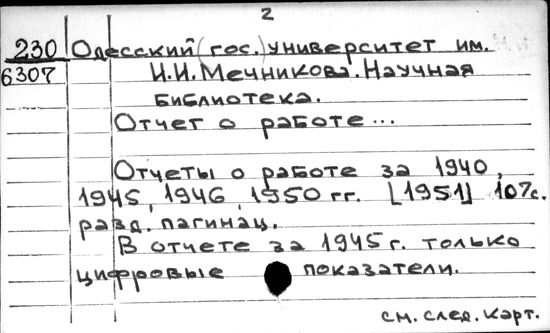 2
230 Одесский (гос.) университет им.
6307 И.И. Мечникова. Научная
библиотека.
Отчет о работе...
Отчеты о работе за 1940,
1945, 1946, 1950 гг. [1951] 107с.
разд. пагинац.
В отчете за 1945 г. только
цифровые показатели.
см. след. карт.